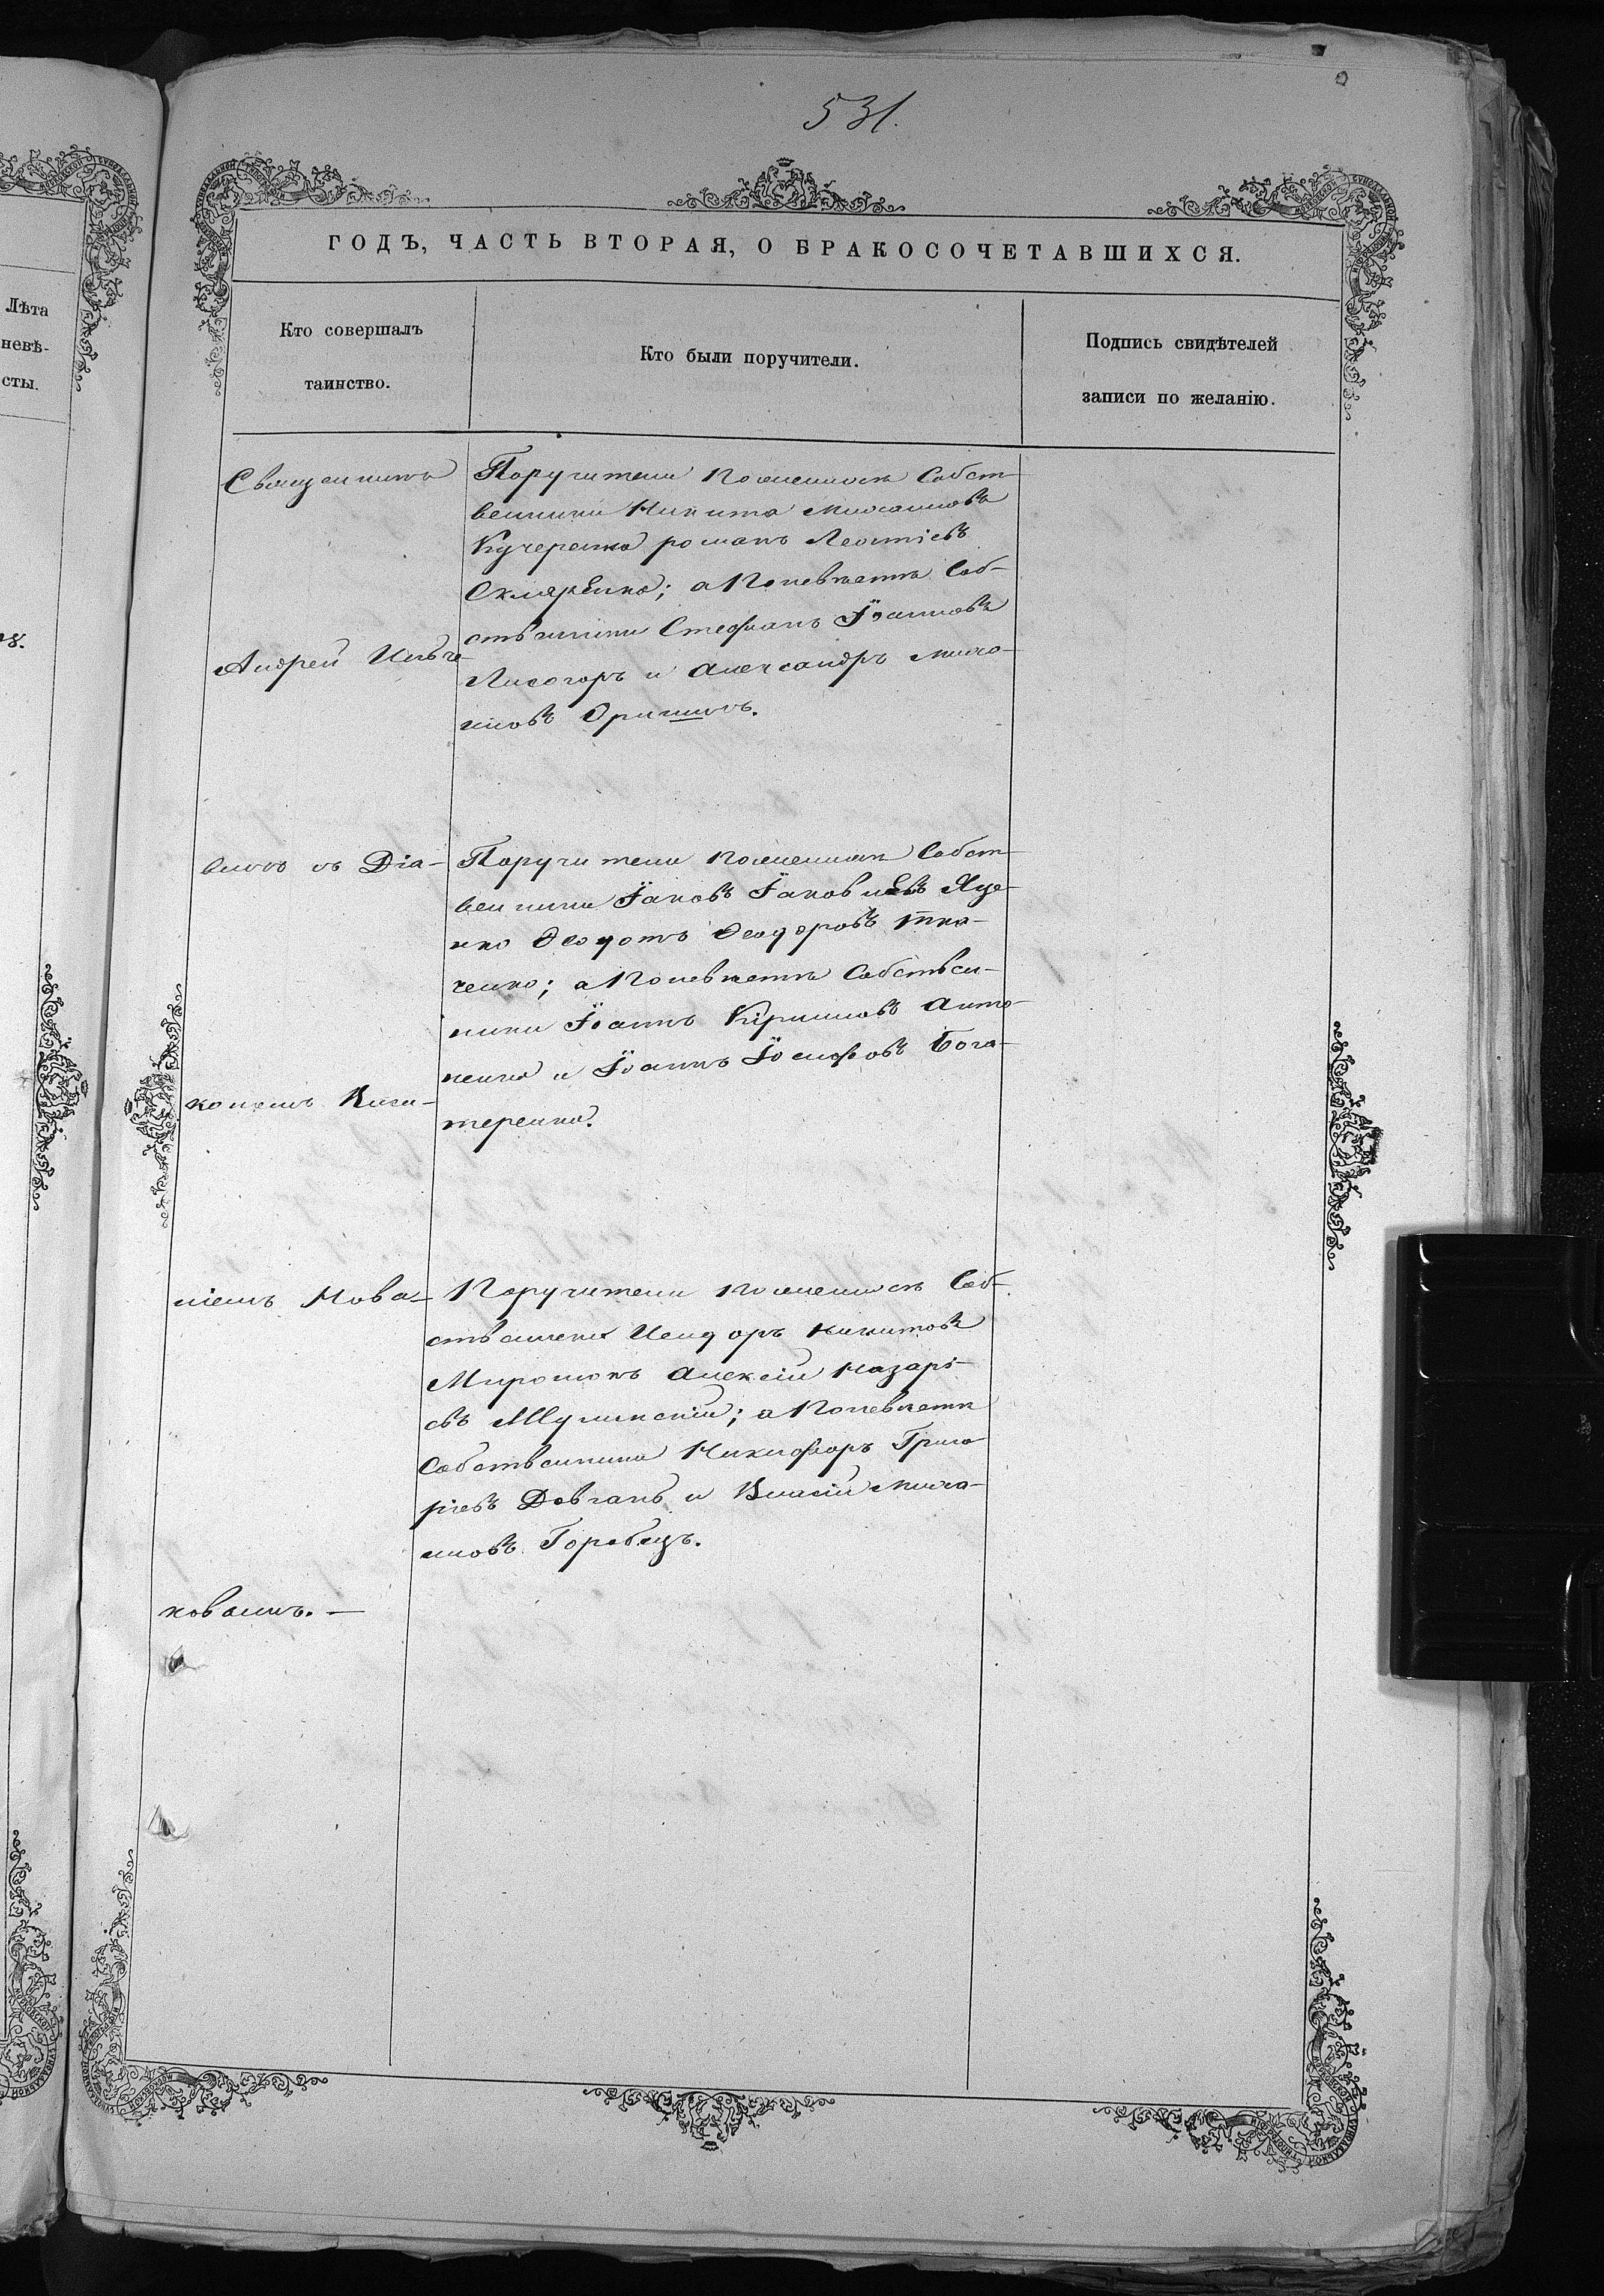 531.
ГОДЪ, ЧАСТЬ ВТОРАЯ, О БРАКОСОЧЕТАВШИХСЯ.
Лѣта
невѣ-
сты.
Кто совершалъ
таинство.
Кто были поручители.
Подпись свидѣтелей
записи по желанію.
Священникъ
Андрей Ильче-
вичъ съ Діа-
кономъ
ніемъ Нова-
ковымъ. —
Поручители по женихѣ Собст-
венники Никита Михаиловъ
Кучеренко романъ Леонтіевъ
Скляренко; а по невѣстѣ Соб-
ственники Стефанъ Іоанновъ
Лисогоръ и Александръ Миха-
иловъ
Поручители по женихѣ Собст-
венники Іаковъ Іаковлевъ Яце-
нко Ѳеодотъ Ѳеодоровъ Тка-
ченко; а по невѣстѣ Собствен-
ники Іоаннъ Кириловъ Анто-
ненко и Іоаннъ Іосифовъ Бога-
теренко.
Поручители по женихѣ Соб-
ственники Исидоръ Никитовъ
Мирошникъ Алексій Назарі-
евъ; а по невѣстѣ
Собственники Никифоръ Григо
ріевъ Довгань и Власій Миха-
иловъ Горобецъ.